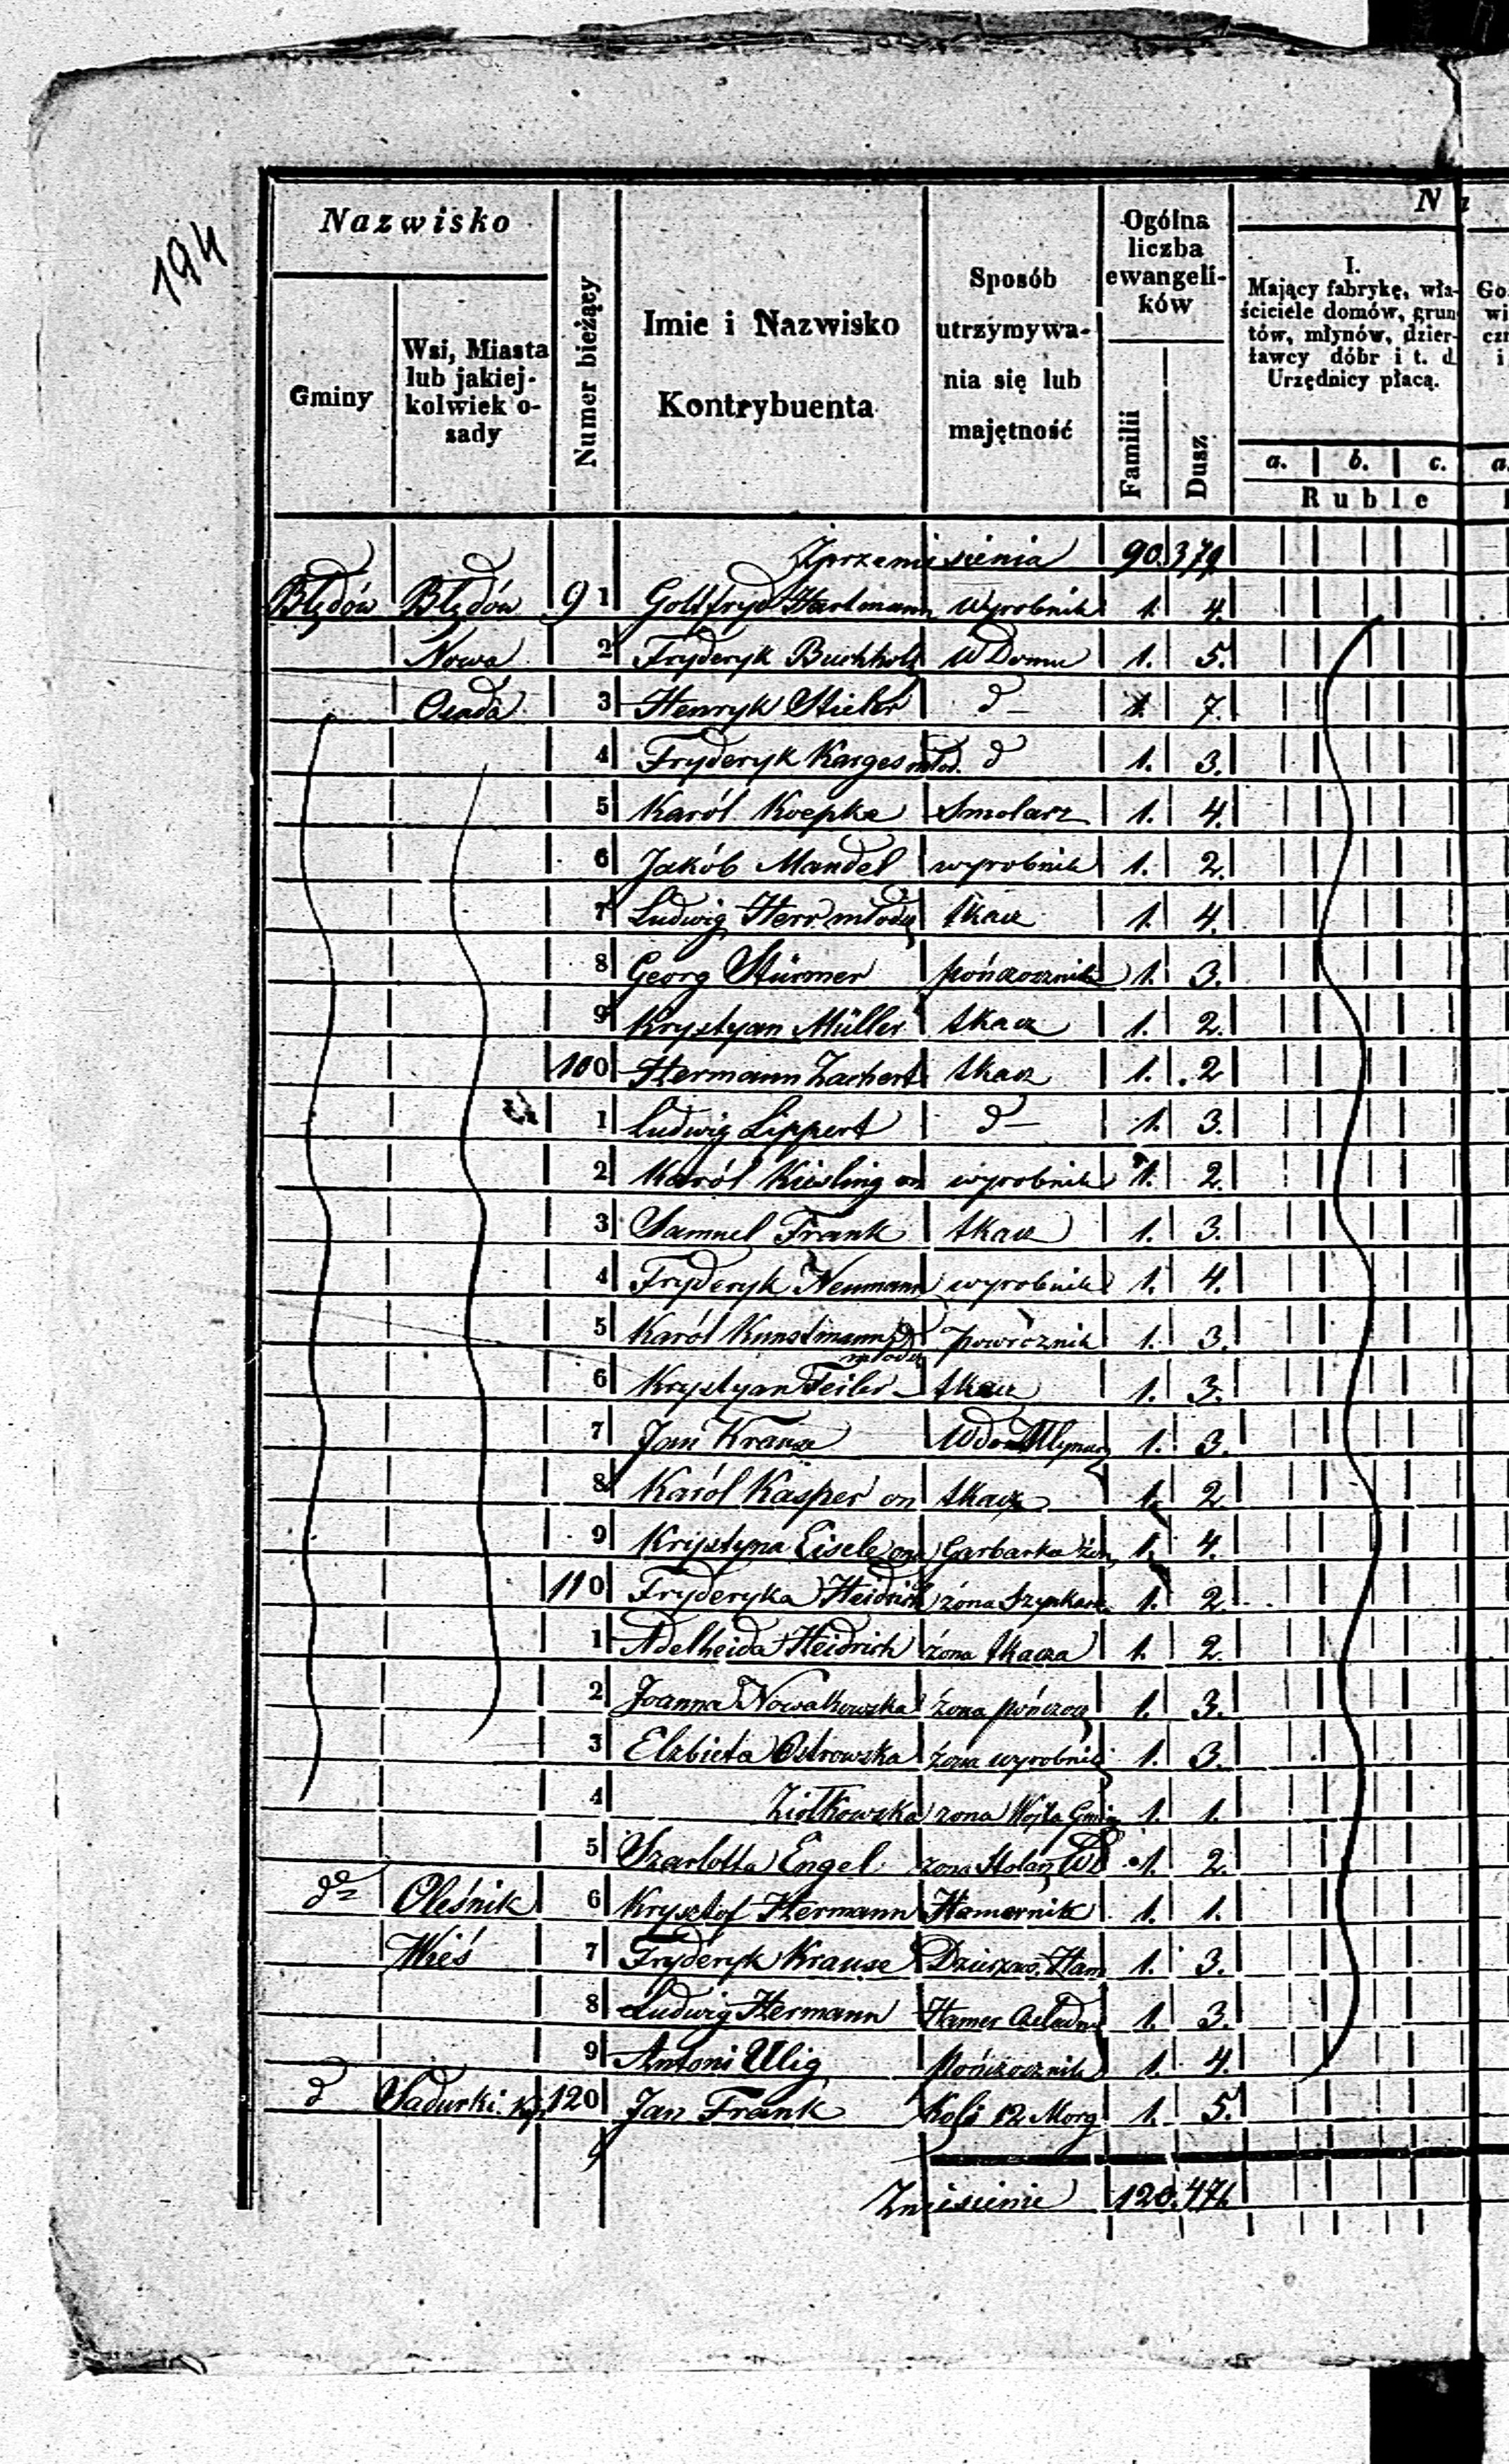 194
Nazwisko
Gminy
Wsi, Miasta lub jakiej-kolwiek o-sady
Numer bieżący
Imie i Nazwisko Kontrybuenta
Sposób utrzymywa-nia się lub majętność
Ogólna liczba ewangeli-ków
Familii
Dusz
N
I.
Mający fabrykę, wła-
ściciele domów, grun
tów, młynów, dzier-
ławcy dóbr i t. d
Urzędnicy płacą.
a. b. c.
Ruble
Zprzeniesienia 90. 379
Błędów Błędów 91 Gottfryd Hartmann Wyrobnik 1. 4.
Nowa 2 Fryderyk Buchholz W Domu 1. 5.
Osada 3 Henryk Stieler d 1. 7.
4 Fryderyk Karges młod. d 1. 3.
5 Karól Koepke Smolarz 1. 4.
6 Jakób Mandel wyrobnik 1. 2.
7 Ludwig Herr młody tkacz 1. 4.
8 Georg Stürmer pończosznik 1. 3.
9 Krystyan Müller tkacz 1. 2.
100 Hermann Zachert tkacz 1. 2
1 Ludwig Lippert d 1. 3.
2 Karól Kiesling on wyrobnik 1. 2.
3 Samuel Frank tkacz 1. 3.
4 Fryderyk Neumann wyrobnik 1. 4.
5 Karól Kunstmann młody powróznik 1. 3.
6 Krystyan Feiler tkacz 1. 3.
7 Jan Krause W dom Młynarz 1. 3.
8 Karól Kasper on tkacz 1. 2
9 Krystyna Eisele ona Garbarka żon 1. 4.
110 Fryderyka Heidrich żona Szynkarz 1. 2.
1 Adelheida Heidrich żona tkacza 1. 2
2 Joanna Nowakowska żona pończosz 1. 3.
3 Elżbieta Ostrowska żona wyrobnik 1. 3.
4 Ziółkowska zona Wojta Gminy 1. 1.
5 Szarlotta Engel zona Stolarz 1. 2
Oleśnik 6 Krysztof Hermann Hamernik 1. 1.
Wieś 7 Fryderyk Krause Dzierzaw. Ham 1. 3.
8 Ludwig Hermann Hamer Czeladnik 1. 3.
9 Antoni Ulig pończosznik 1. 4.
d Sadurki 120 Jan Frank Kolo 12 Morg 1. 5.
Zniesienie 120. 471.